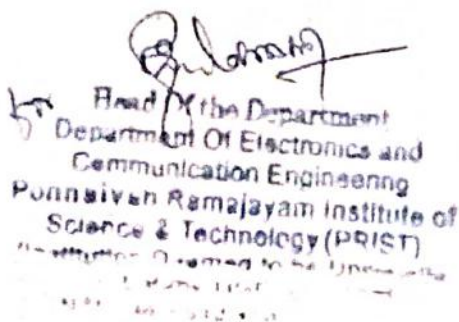 for Head of the Department
Department Of Electronics and
Communication Engineering
Ponnaiyah Ramajayam Institute of
Science & Technology (PRIST)
to be